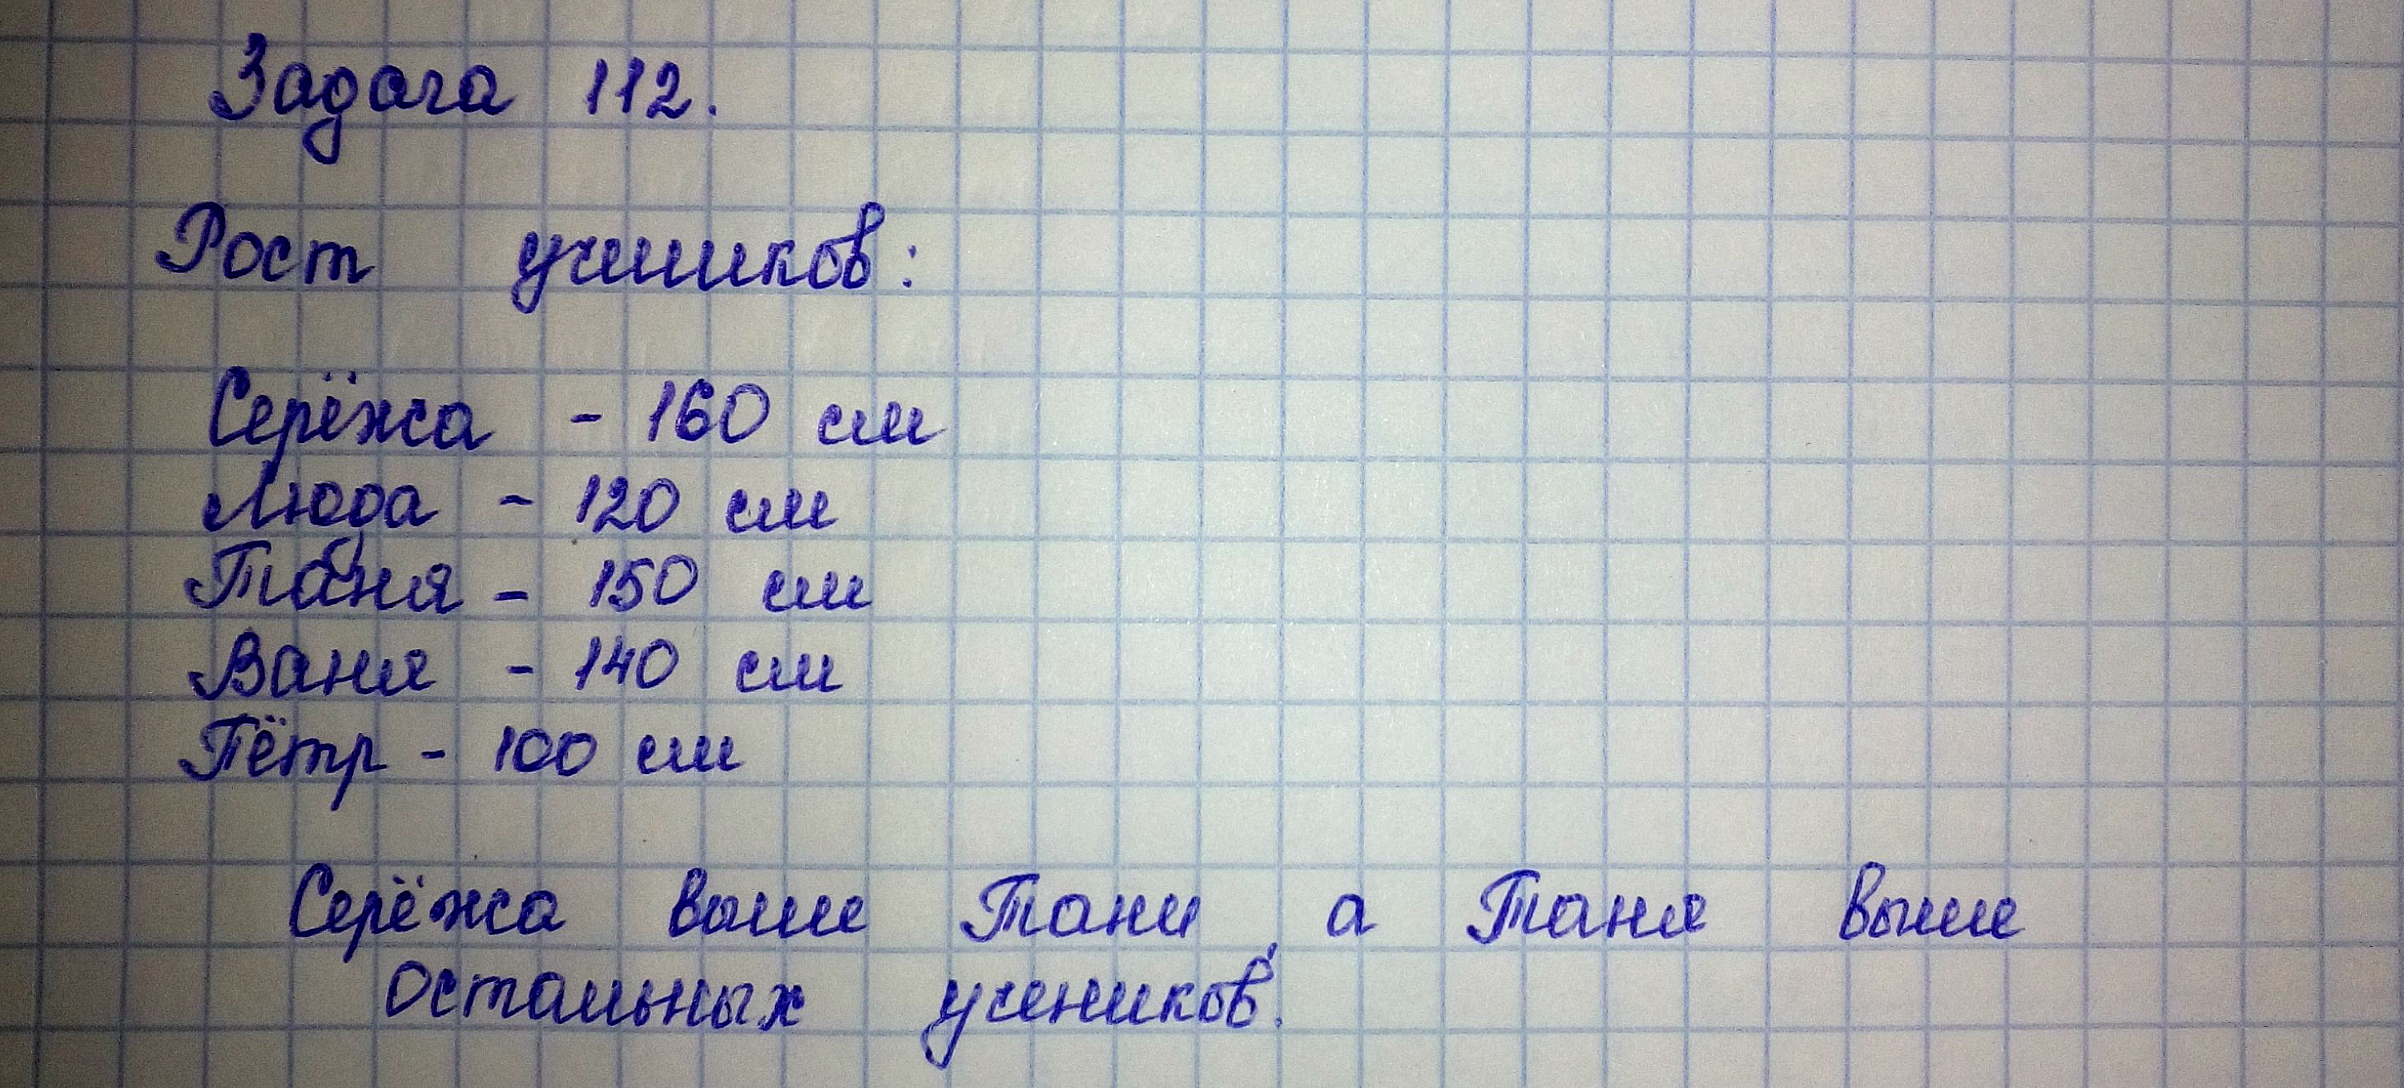 Задача 112.
Рост учиников:
Серёжа - 160 см
Люда - 120 см
Таня - 150 см
Ваня - 140 см
Пётр - 100 см
Серёжа выше Тани, а Таня выше
остальных учеников.